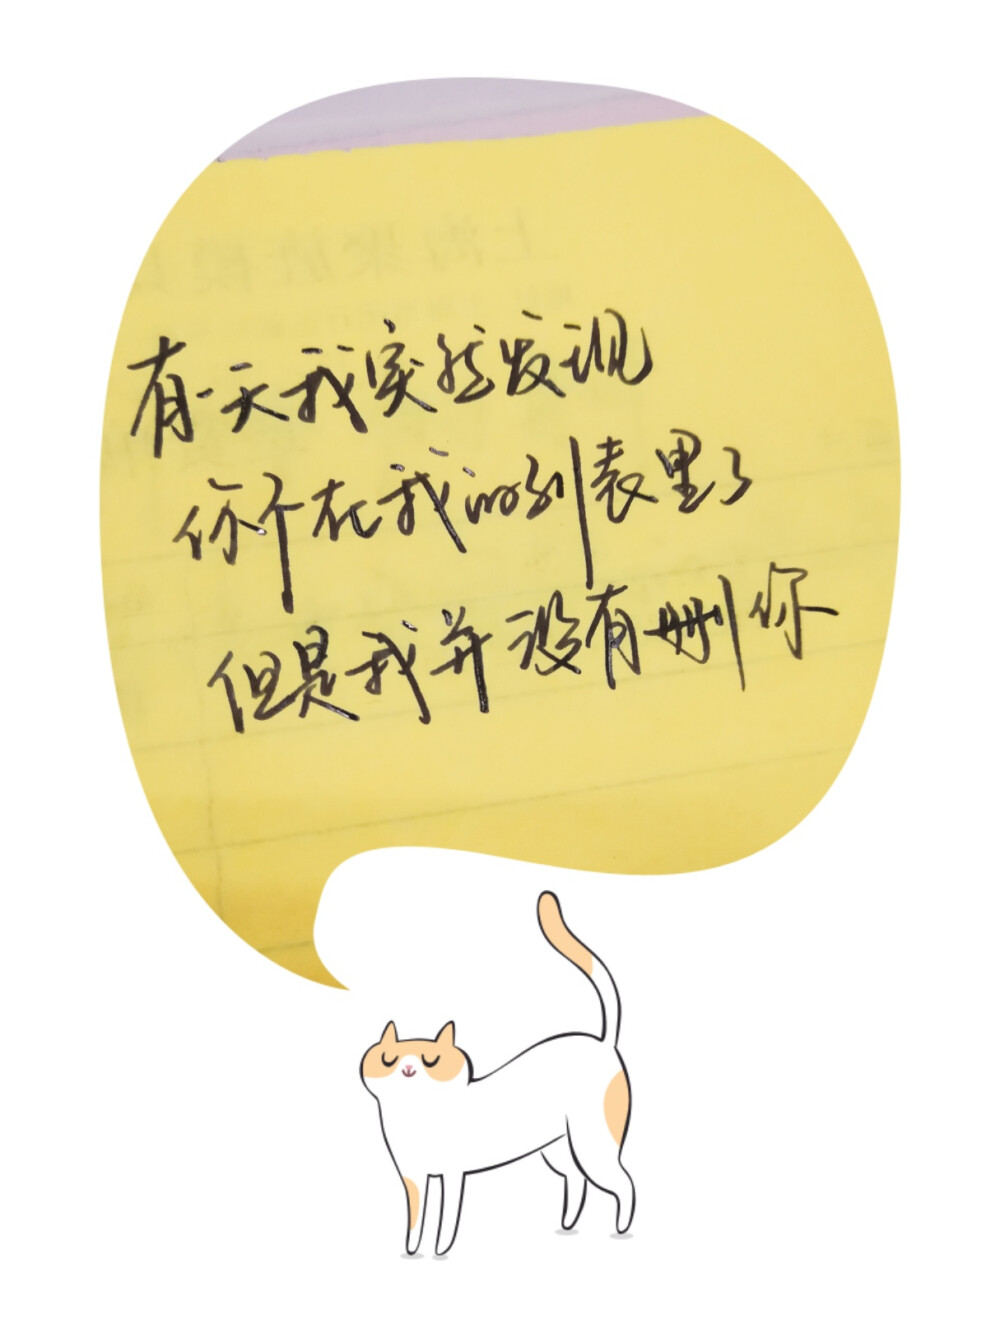 有一天我突然发现
你不在我的列表里了
但是我并没有删你